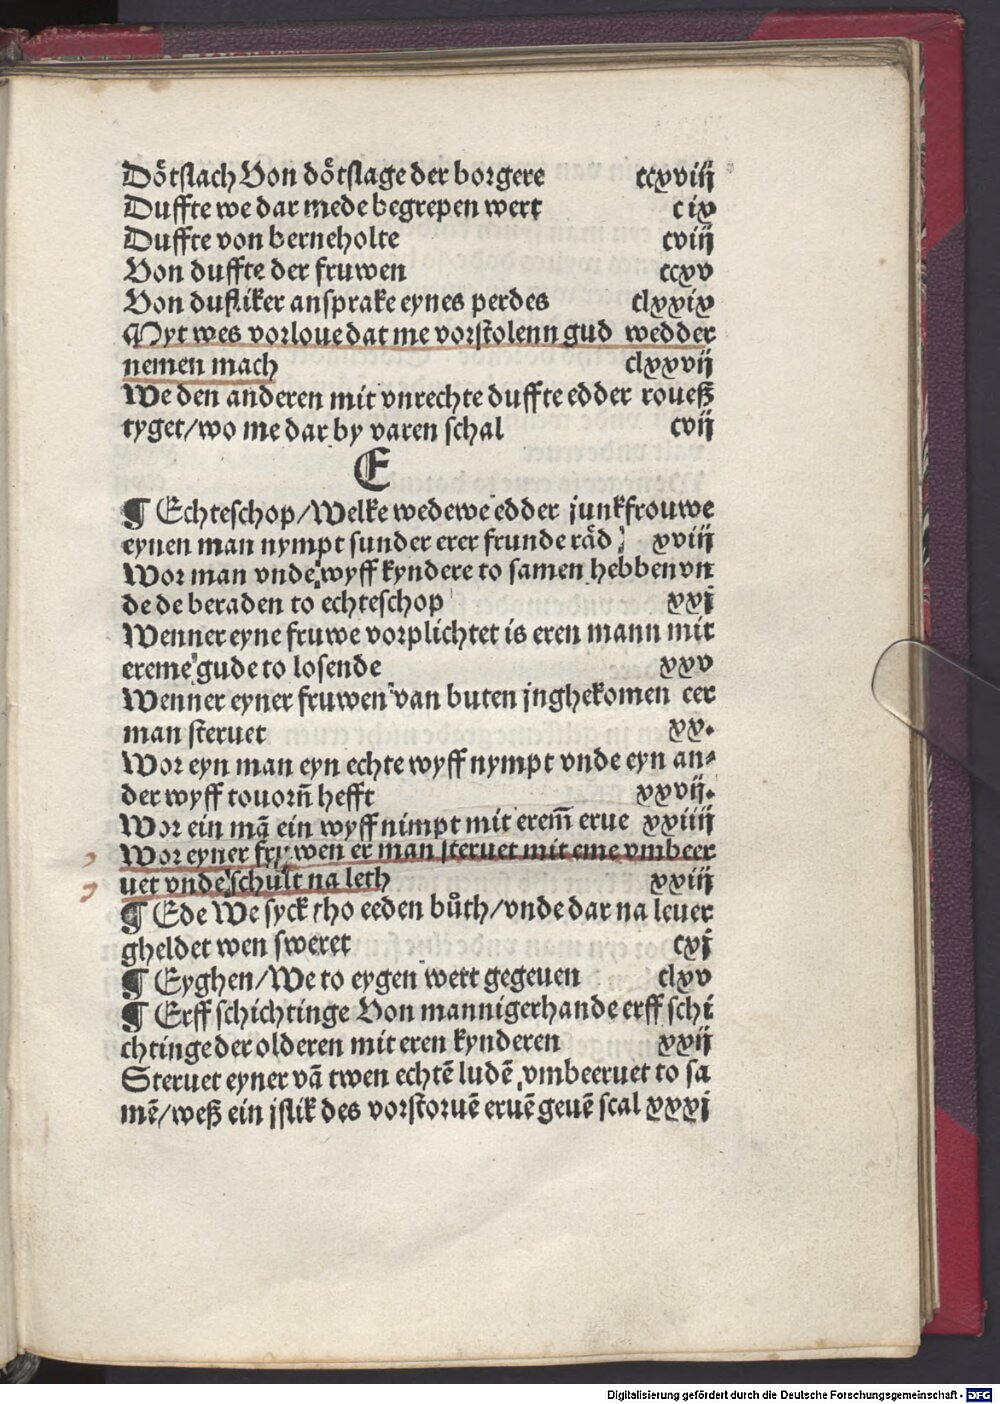 Dötslach Von dötslage der borgere ccxviij
Duffte we dar mede begrepen wert cix
Duffte von berneholte cviij
Von duffte der fruwen ccxv
Von dufliker ansprake eynes perdes clxxix
Myt wes vorloue dat me vorstolenn gud wedder
nemen mach clxxvij
We den anderen mit vnrechte duffte edder roueß
tyget/wo me dar by varen schal cvij
E
¶ Echteschop/Welke wedewe edder junkfrouwe
eynen man nympt sunder erer frunde räd xviij
Wor man vnde wyff kyndere to samen hebben vn
de de beraden to echteschop xxj
Wenner eyne fruwe vorplichtet is eren mann mit
ereme gude to losende xxv
Wenner eyner fruwen van buten jnghekomen eer
man steruet xx.
Wor eyn man eyn echte wyff nympt vnde eyn an⸗
der wyff touorn̄ hefft xxvij.
Wor ein mā ein wyff nimpt mit erem̄ erue xxiiij
Wor eyner fruwen er man steruet mit eme vmbeer
uet vnde schult na leth xxiij
¶ Ede We syck tho eeden bůth/vnde dar na leuer
gheldet wen sweret cxj
¶ Eyghen/We to eygen wert gegeuen clxv
¶ Erff schichtinge Von mannigerhande erff schi
chtinge der olderen mit eren kynderen xxij
Steruet eyner vā twen echtē ludē vmbeeruet to sa
mē/weß ein jslik des vorstoruē eruē geuē scal xxxj
Digitalisierung gefördert durch die Deutsche Forschungsgemeinschaft - DFG